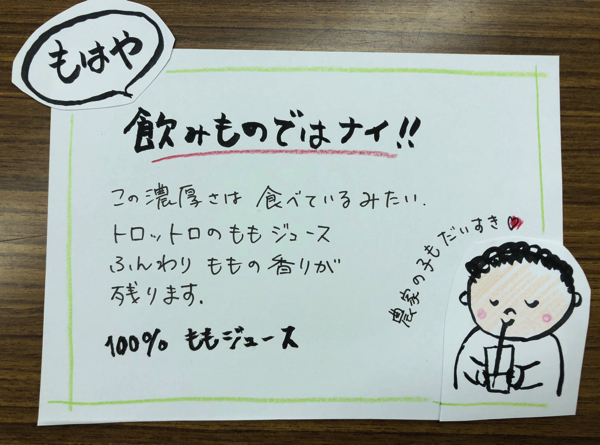 もはや
飲みものではナイ!!
この濃厚さは 食べているみたい.
トロットロのももジュース
ふんわり ももの香りが
残ります.
農家の子もだいすき♥
100% ももジュース